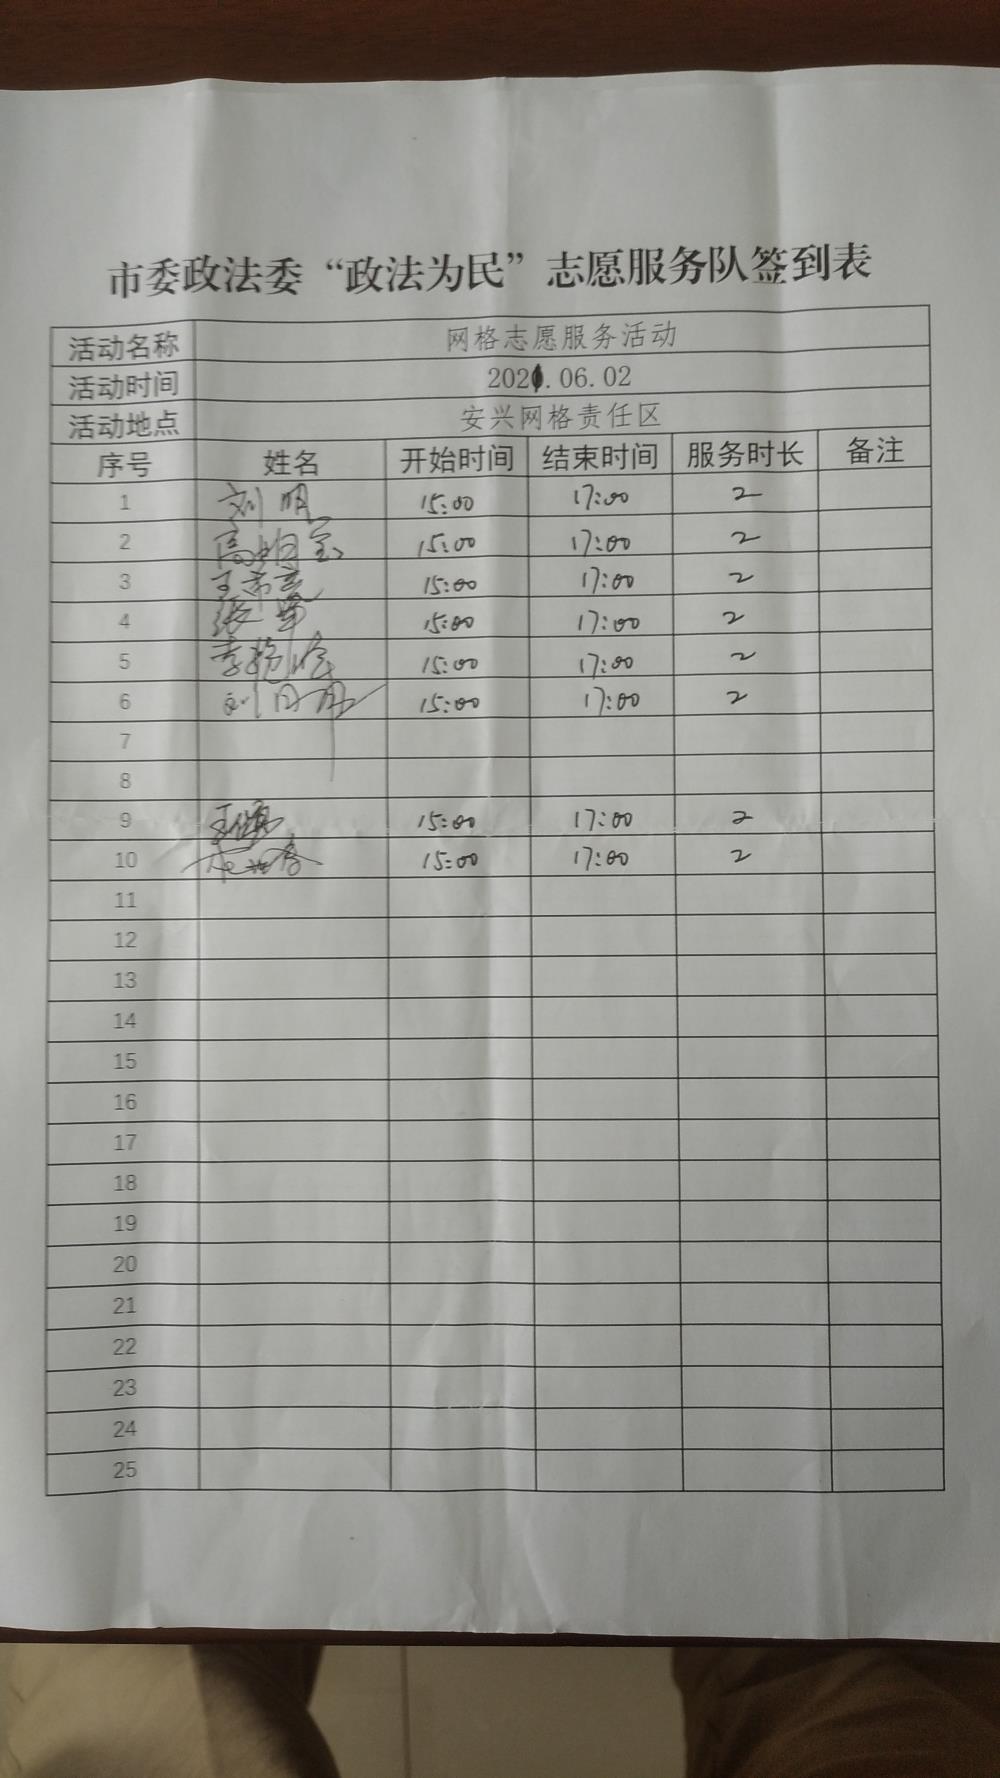 市委政法委“政法为民”志愿服务队签到表
活动名称 网格志愿服务活动
活动时间 2021.06.02
活动地点 安兴网格责任区
序号 姓名 开始时间 结束时间 服务时长 备注
1 刘明 15:00 17:00 2
2 15:00 17:00 2
3 15:00 17:00 2
4 张军 15:00 17:00 2
5 15:00 17:00 2
6 15:00 17:00 2
7
8
9 15:00 17:00 2
10 15:00 17:00 2
11
12
13
14
15
16
17
18
19
20
21
22
23
24
25